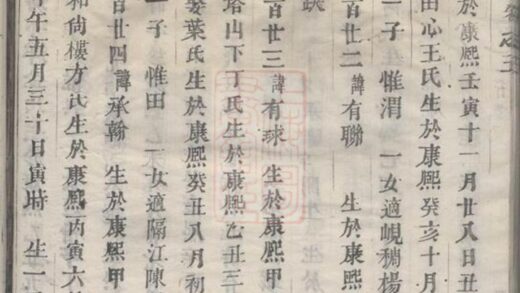 於康熙壬寅十一月廿八日丑
田心王氏生於康熙癸亥十月
一子 惟渭 一女適峴稍楊
百廿二 諱有聯 生於康熙
缺
百廿三 諱有球 生於康熙甲
塔山下丁氏生於康熙乙丑三
娶葉氏生於康熙癸丑八月初
一子 惟田 一女適隔江陳
百廿四 諱承翰 生於康熙甲
和尚樓方氏生於康熙丙寅六
午五月三十日寅時 生一